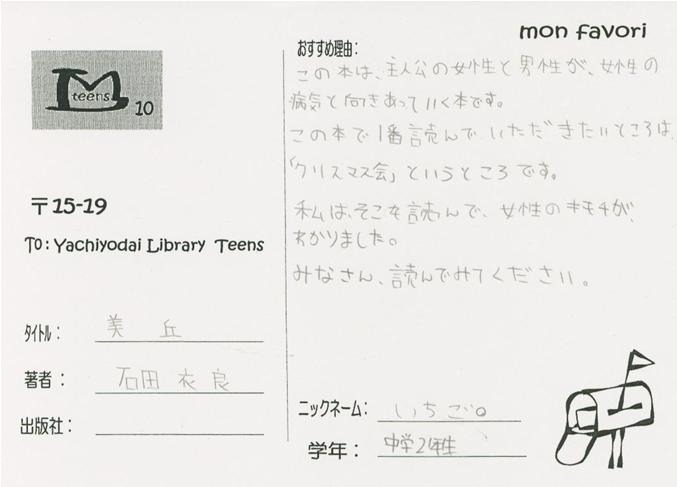 mon favori
teens
10
〒15-19
To: Yachiyodai Library Teens
タイトル: 美 丘
著者: 石田 衣良
出版社:
おすすめ理由:
この本は、主人公の女性と男性が、女性の
病気と向きあっていく本です。
この本で1番読んでいただきたいところは、
「クリスマス会」というところです。
私は、そこを読んで、女性のキモチが、
わかりました。
みなさん、読んでみてください。
ニックネーム: いちご。
学年: 中学2年生